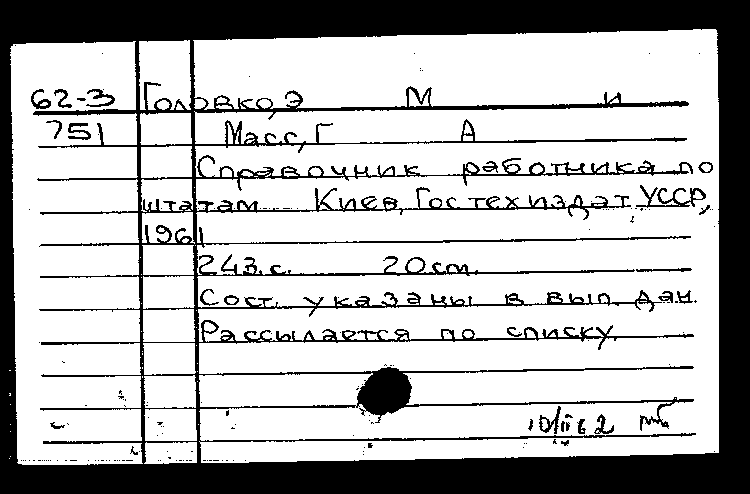 62-3 Головко, Э М и
751 Масс, Г А
Справочник работника по
штатам Киев, Гостехиздат УССР,
1961
243 с. 20 см.
Сост. указаны в вып. дан.
Рассылается по списку.
10/II 62